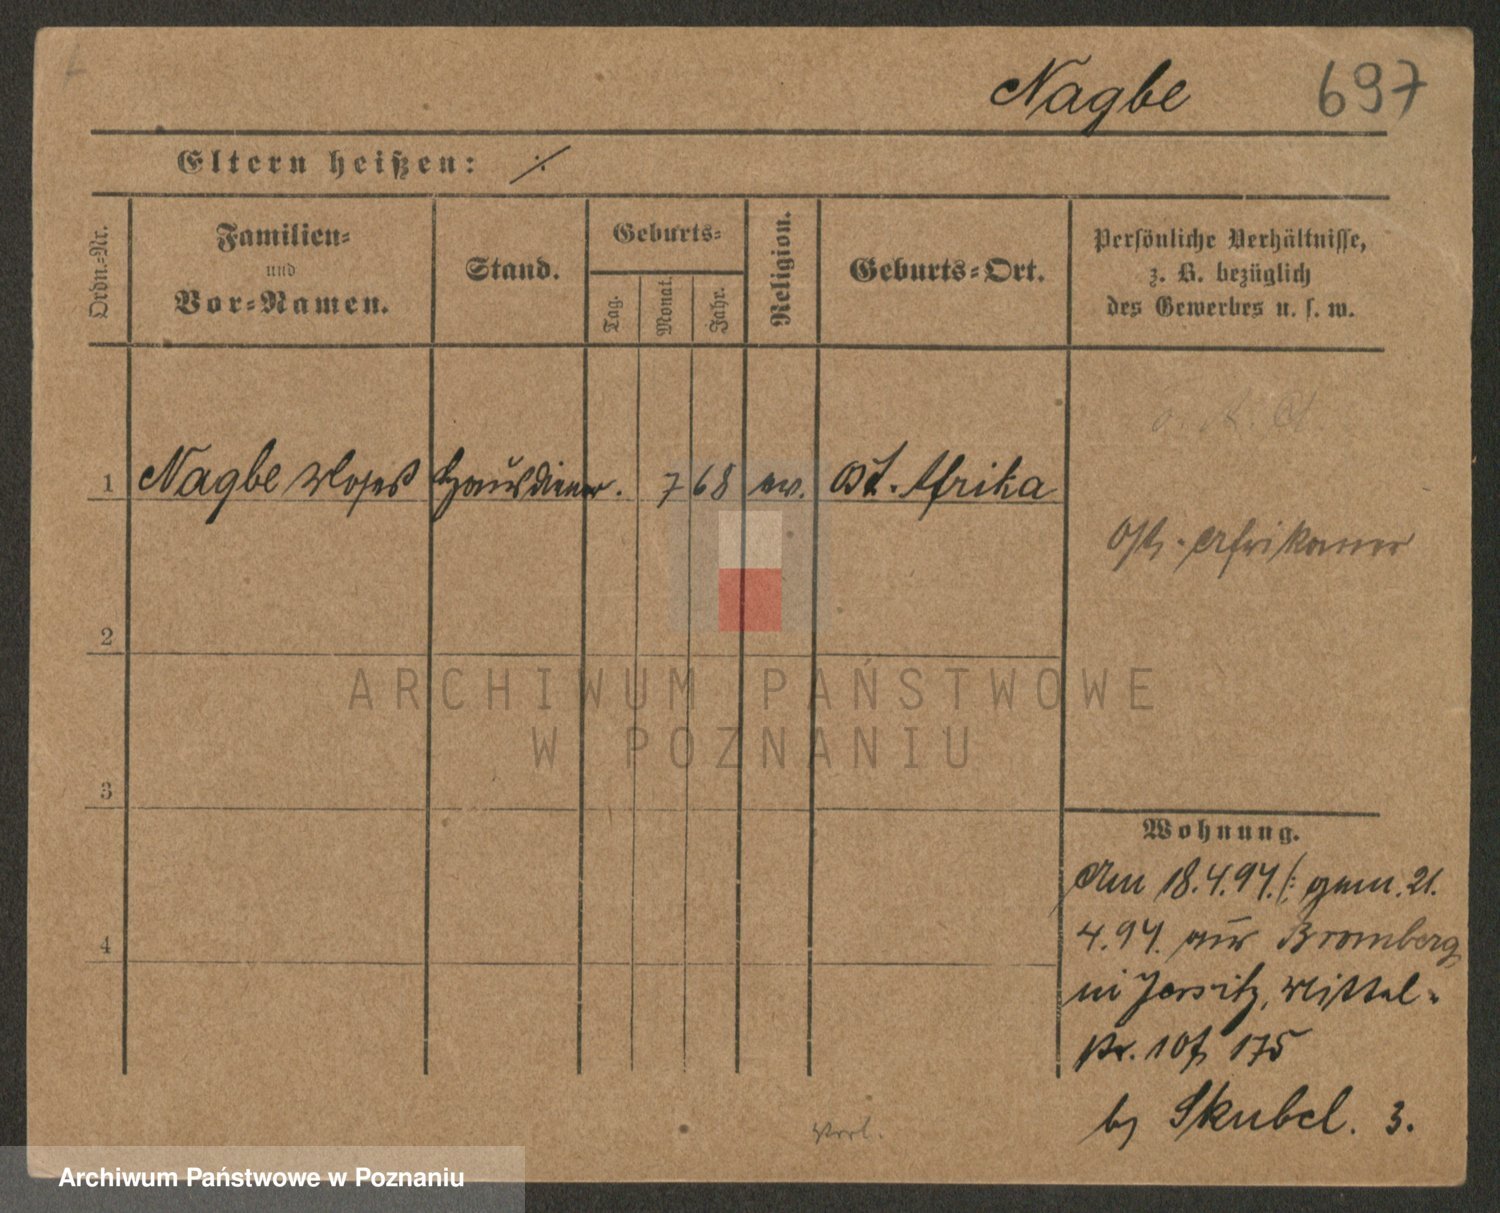 Nagbe 697
Eltern heißen: ·/.
Ordn.-Nr.
Familien-
und
Vor-Namen.
Stand.
Geburts-
Tag.
Monat.
Jahr.
Religion.
Geburts-Ort.
Persönliche Verhältnisse,
z. B. bezüglich
des Gewerbes u. s. w.
1 Nagbe Moses Hausdiener. 7 68 ev. Ost. Afrika
Ost-Afrikaner
2
3
4
ARCHIWUM PAŃSTWOWE
W POZNANIU
Wohnung.
Am 18.4.94. /: gem. 21.
4.94. aus Bromberg
in Jersitz, Mittel-
str. 175
b/ Skubel. 3.
Archiwum Państwowe w Poznaniu